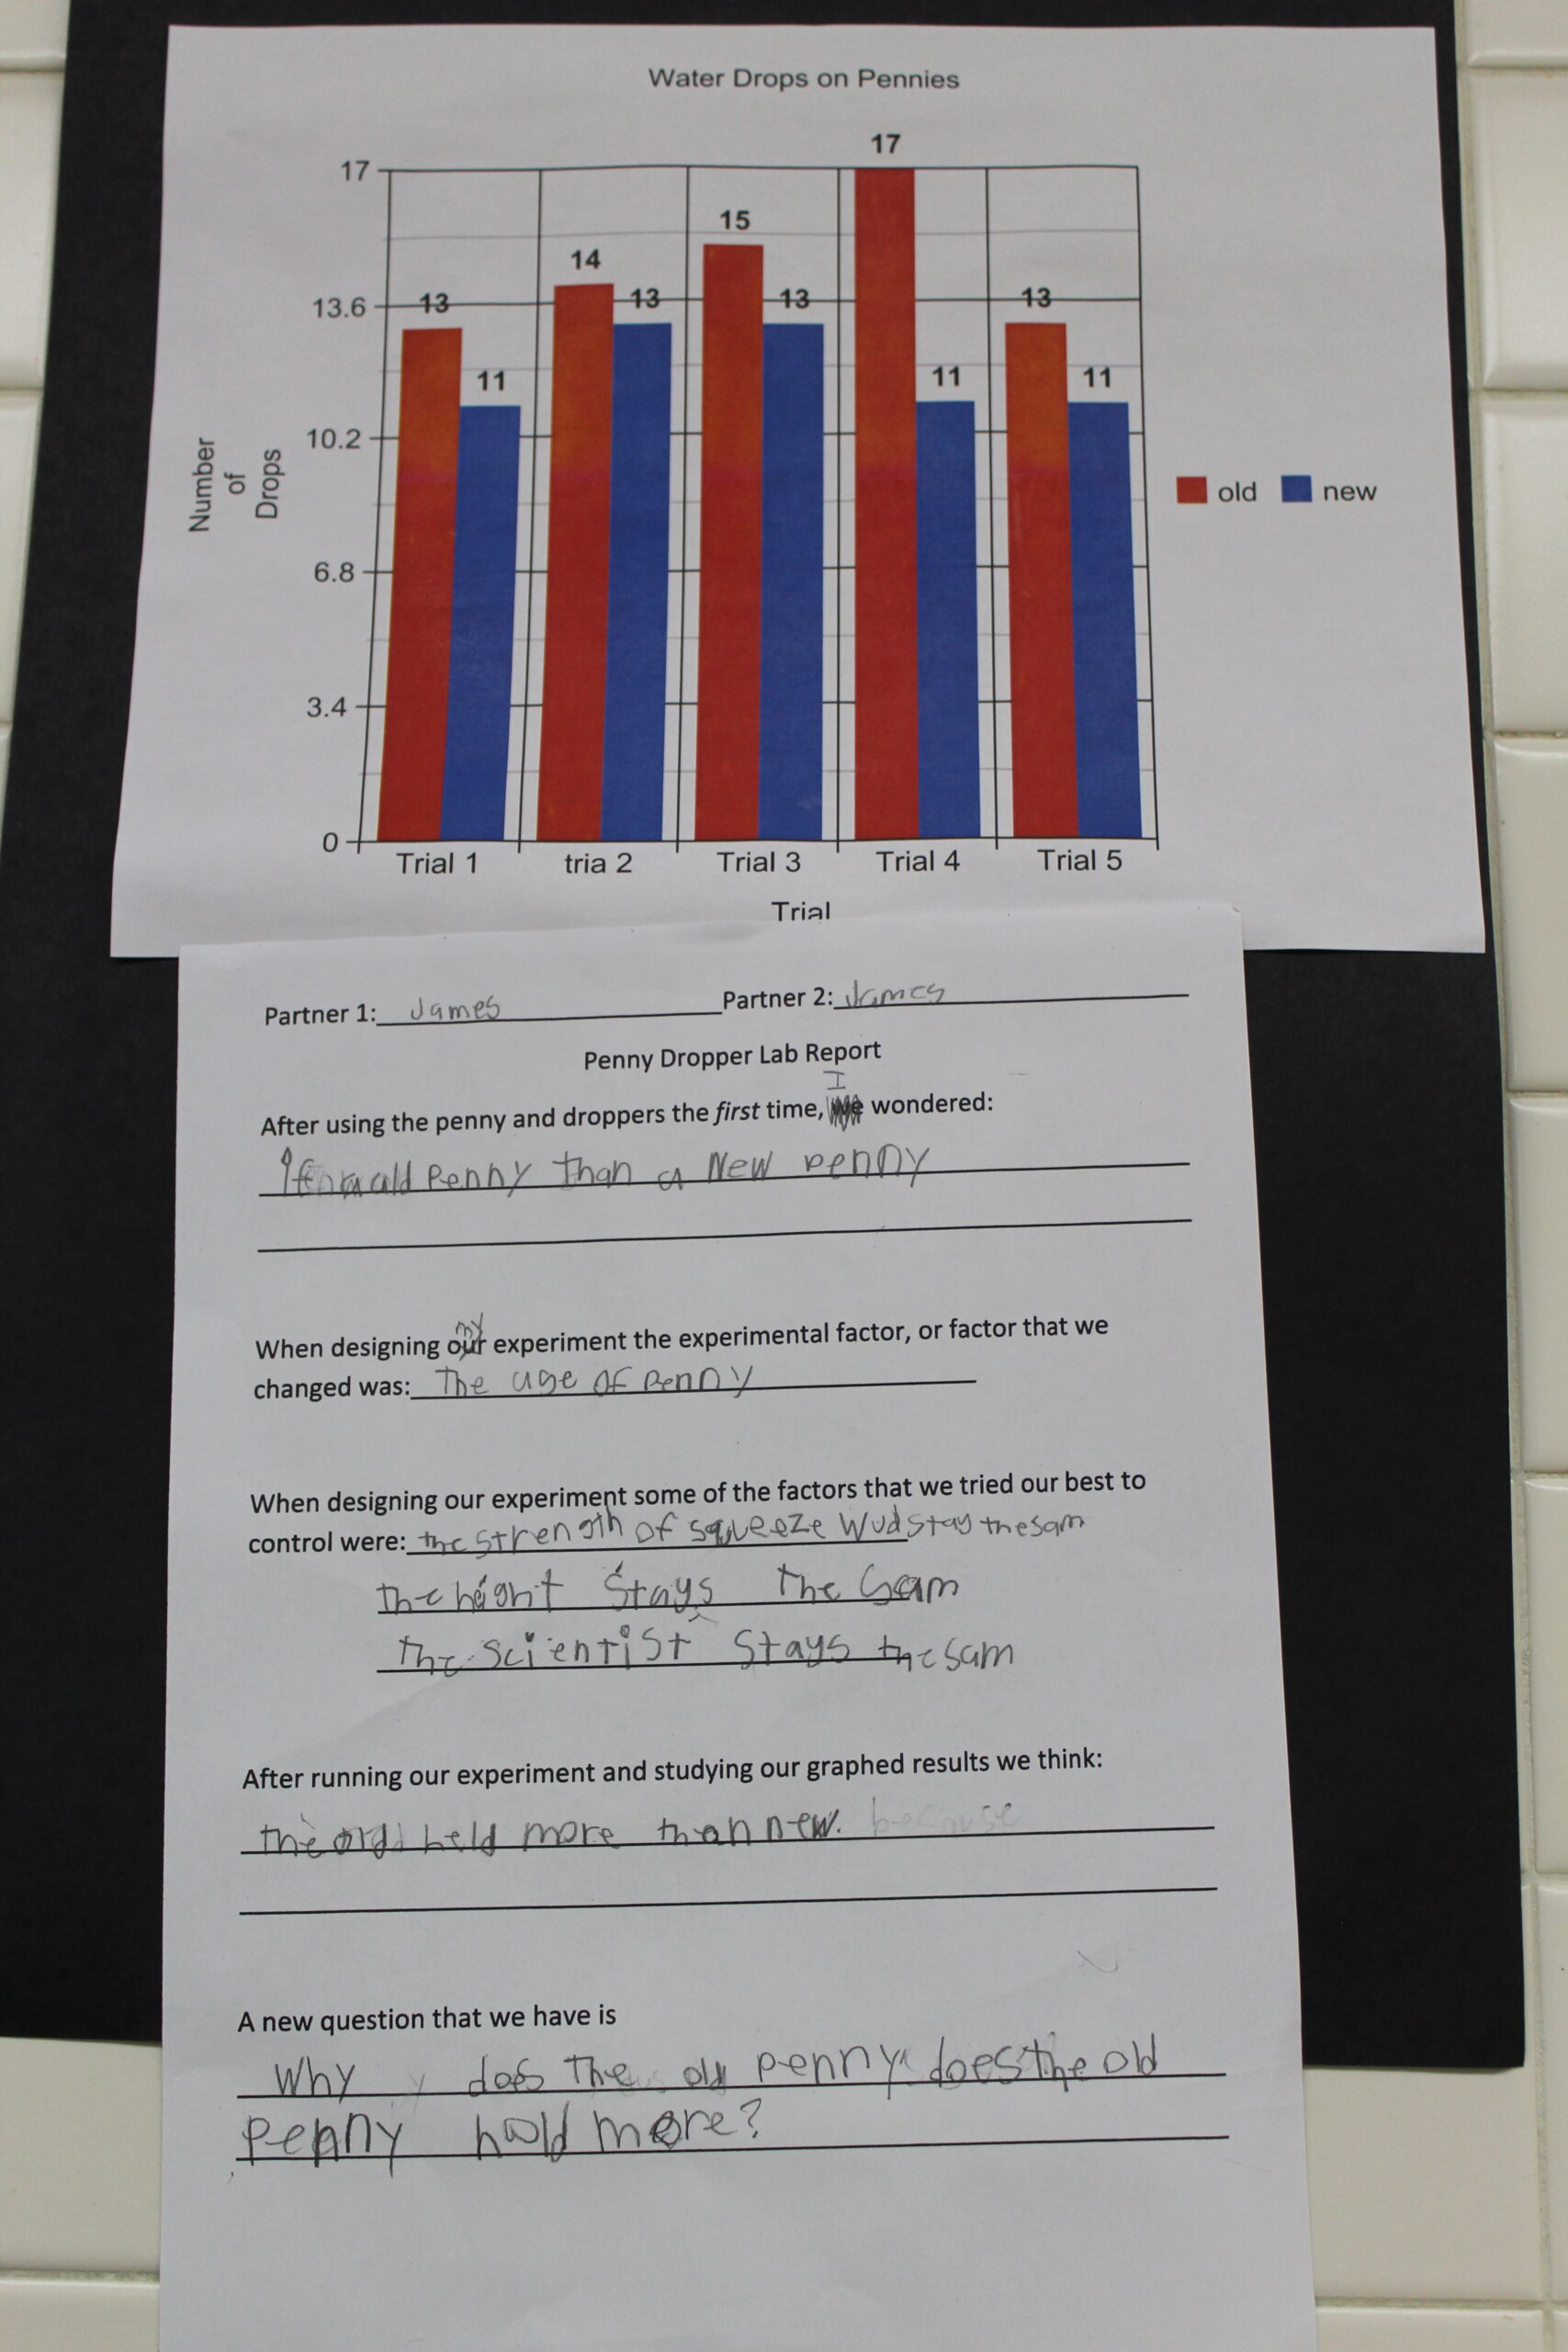 Water Drops on Pennies
17
17
15
14
13.6
13
13
13
13
11
11
11
10.2
Number
of
Drops
old new
6.8
3.4
0
Trial 1 tria 2 Trial 3 Trial 4 Trial 5
Trial
Partner 1: James Partner 2: James
Penny Dropper Lab Report
I
After using the penny and droppers the first time, we wondered:
old penny than a New penny
my
When designing our experiment the experimental factor, or factor that we
changed was: The age of penny
When designing our experiment some of the factors that we tried our best to
control were: the strength of squeeze wud stay the sam
the height stays the sam
The scientist stays the sam
After running our experiment and studying our graphed results we think:
the old held more than new. because
A new question that we have is
Why does the old penny does the old
penny hold more?